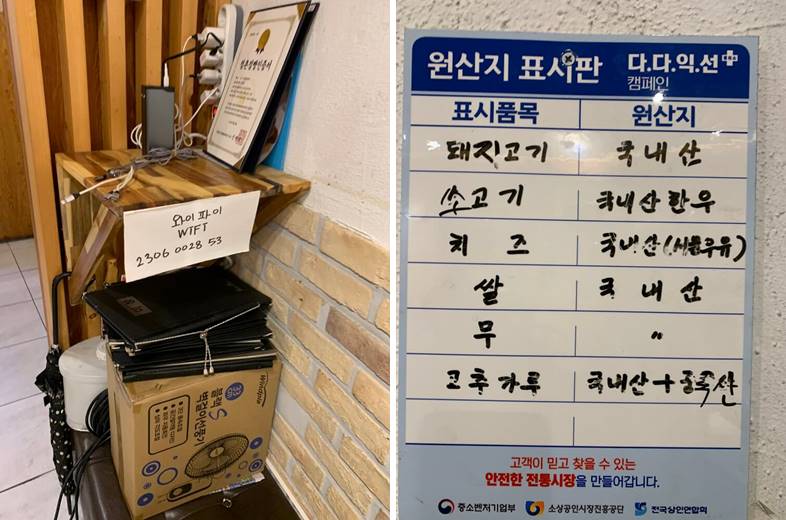 와이파이
WIFI
2306 0028 53
블랙 S
벽걸이선풍기
원산지 표시판
다.다.익.선
캠페인
표시품목 원산지
돼지고기 국내산
쇠고기 국내산한우
치즈 국내산(서울우유)
쌀 국내산
무 〃
고추가루 국내산+중국산
고객이 믿고 찾을 수 있는
안전한 전통시장을 만들어갑니다.
중소벤처기업부 소상공인시장진흥공단 전국상인연합회